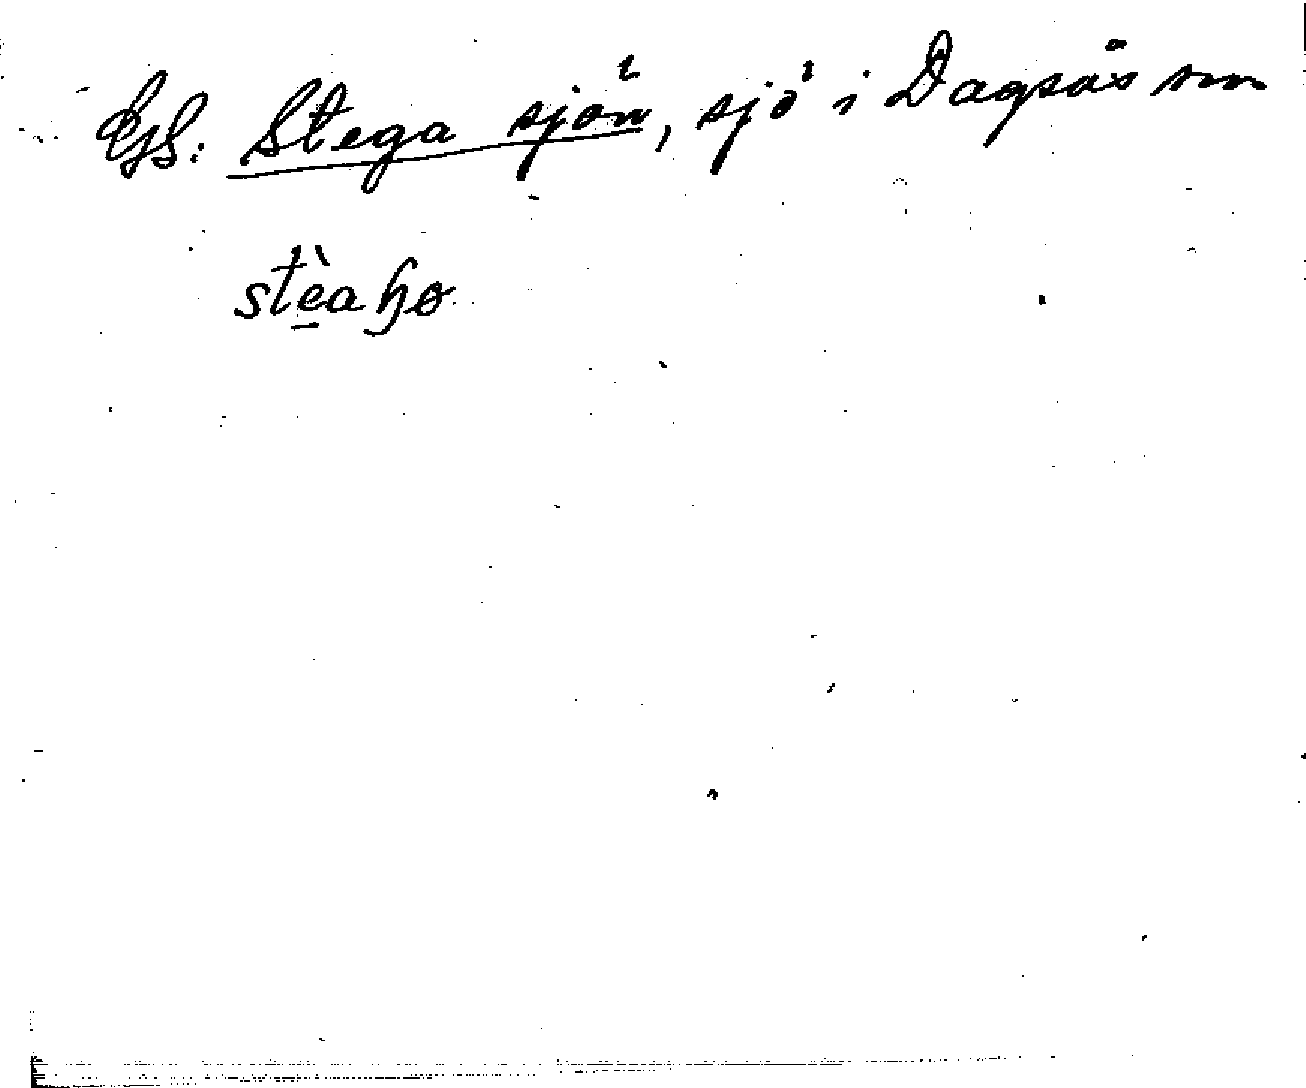 Stega sjön, sjö i Dagsås sn
stèa ꜧɵ